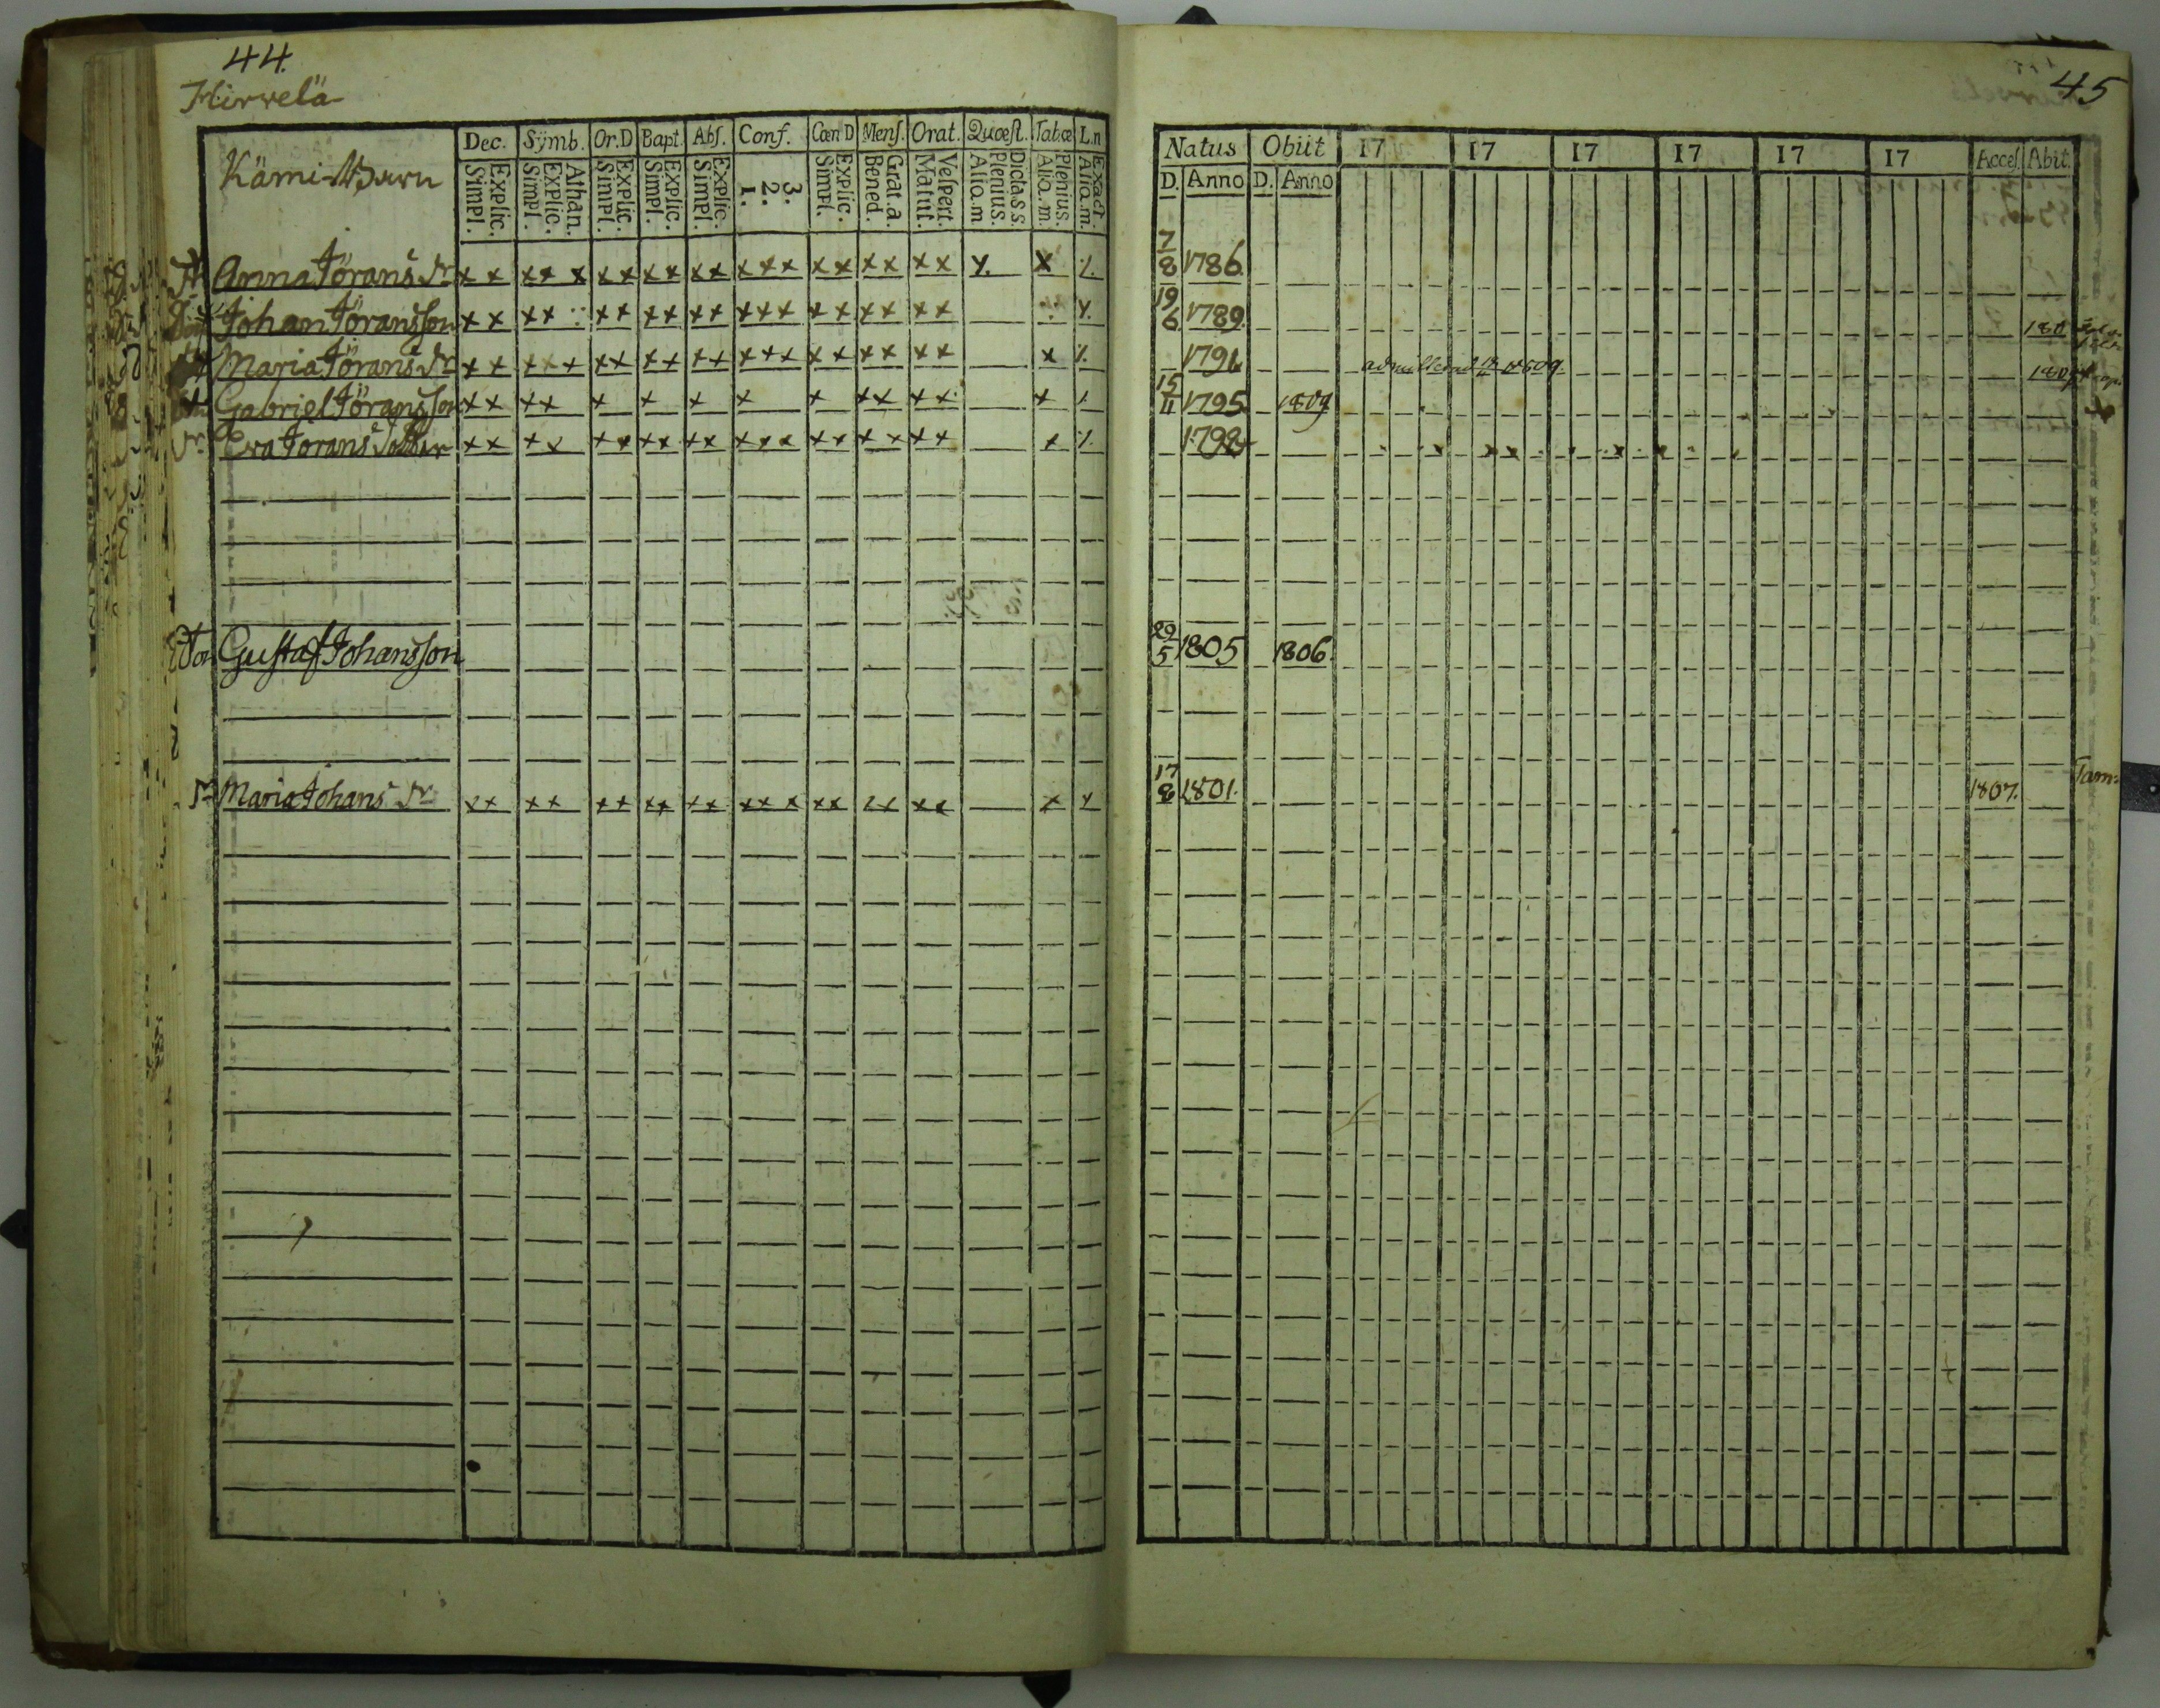 44.
Hirvelä
Dec. Sÿmb. Or.D Bapt. Abſ. Conf. Cœn D Menſ. Orat. Quœſt. Tabœ L.n
Simpl. Explic. Simpl. Explic. Athan. Simpl. Explic. Simpl. Explic. Simpl. Explic. 1. 2. 3. Simpl. Explic. Bened. Grat.a. Matut. Veſpert. Alia.m Plenius. Dicta.s s. Alia.m. Plenius. Alia.m. Exact
Anna Jörans Dr x x x x x x x x x x x x x x x x x x x x x
Johan Jöransson x x x x x x x x x x x x x x x x x x
Maria Jörans Dr x x x x x x x x x x x x x x x x x x x x
Gabriel Jöransson x x x x x x x x x x x x x x
Eva Jörans Dotter x x x x x x x x x x x x x x x x x x x
Son Gustaf Johansson
Maria Johans Dr x x x x x x x x x x x x x x x x x x x x
45
Natus Obiit 17 17 17 17 17 17 Acceſ. Abit.
D. Anno D. Anno
7/8 1786.
19/6 1789.
1791. 1809
15/11 1795 1809
1798
29/5 1805 1806.
17/8 1801. 1807.